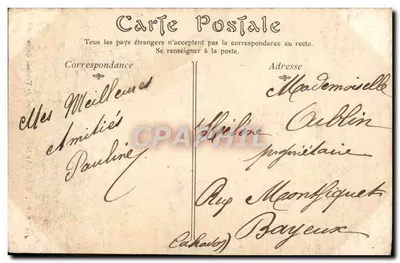 Carte Postale
Tous les pays étrangers n'acceptent pas la correspondance au recto.
Se renseigner à la poste.
Correspondance
Adresse
Mes Meilleures
Amitiés
Pauline
Mademoiselle
Hélène Aublin
propriétaire
Rue Montfiquet
Bayeux
(Calvados)
CPArama.com